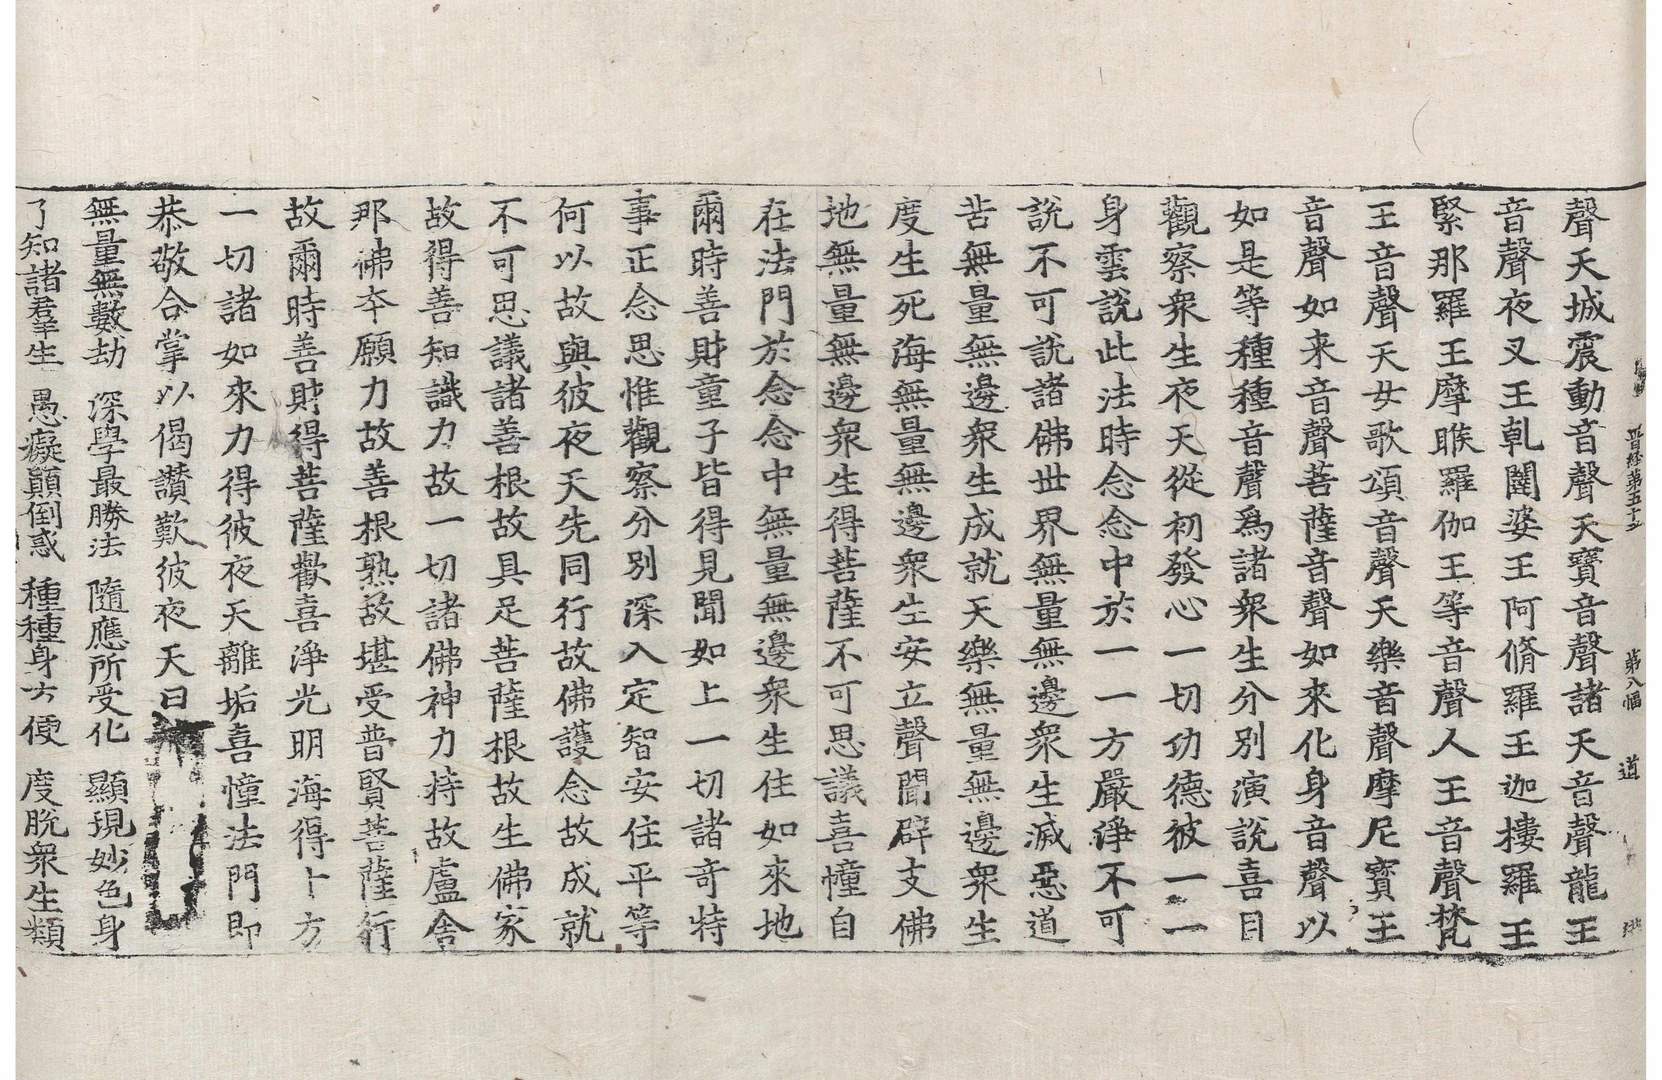 晋經第五十二 第八幅 道
聲天城震動音聲天寶音聲諸天音聲龍王
音聲夜叉王乹闥婆王阿脩羅王迦樓羅王
緊那羅王摩睺羅伽王等音聲人王音聲梵
王音聲天女歌頌音聲天樂音聲摩尼寶王
音聲如来音聲菩薩音聲如來化身音聲以
如是等種種音聲爲諸衆生分別演說喜目
觀察衆生夜天從初發心一切功德彼一一
身雲說此法時念念中於一一方嚴淨不可
說不可說諸佛世界無量無邊衆生滅惡道
苦無量無邊衆生成就天樂無量無邊衆生
度生死海無量無邊衆生安立聲聞辟支佛
地無量無邊衆生得菩薩不可思議喜幢自
在法門於念念中無量無邊衆生住如來地
爾時善財童子皆得見聞如上一切諸奇特
事正念思惟觀察分別深入定智安住平等
何以故與彼夜天先同行故佛護念故成就
不可思議諸善根故具足菩薩根故生佛家
故得善知識力故一切諸佛神力持故盧舍
那佛夲願力故善根熟故堪受普賢菩薩行
故爾時善財得菩薩歡喜淨光明海得十方
一切諸如來力得彼夜天離垢喜幢法門即
恭敬合掌以偈讃歎彼夜天曰
無量無數劫 深學最勝法 隨應所受化 顯現妙色身
了知諸羣生 愚癡顚倒惑 種種身方便 度脫衆生類